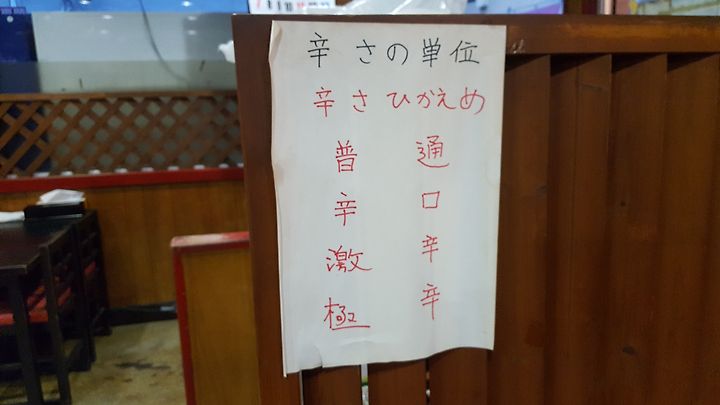 辛さの単位
辛さひかえめ
普通
辛口
激辛
極辛